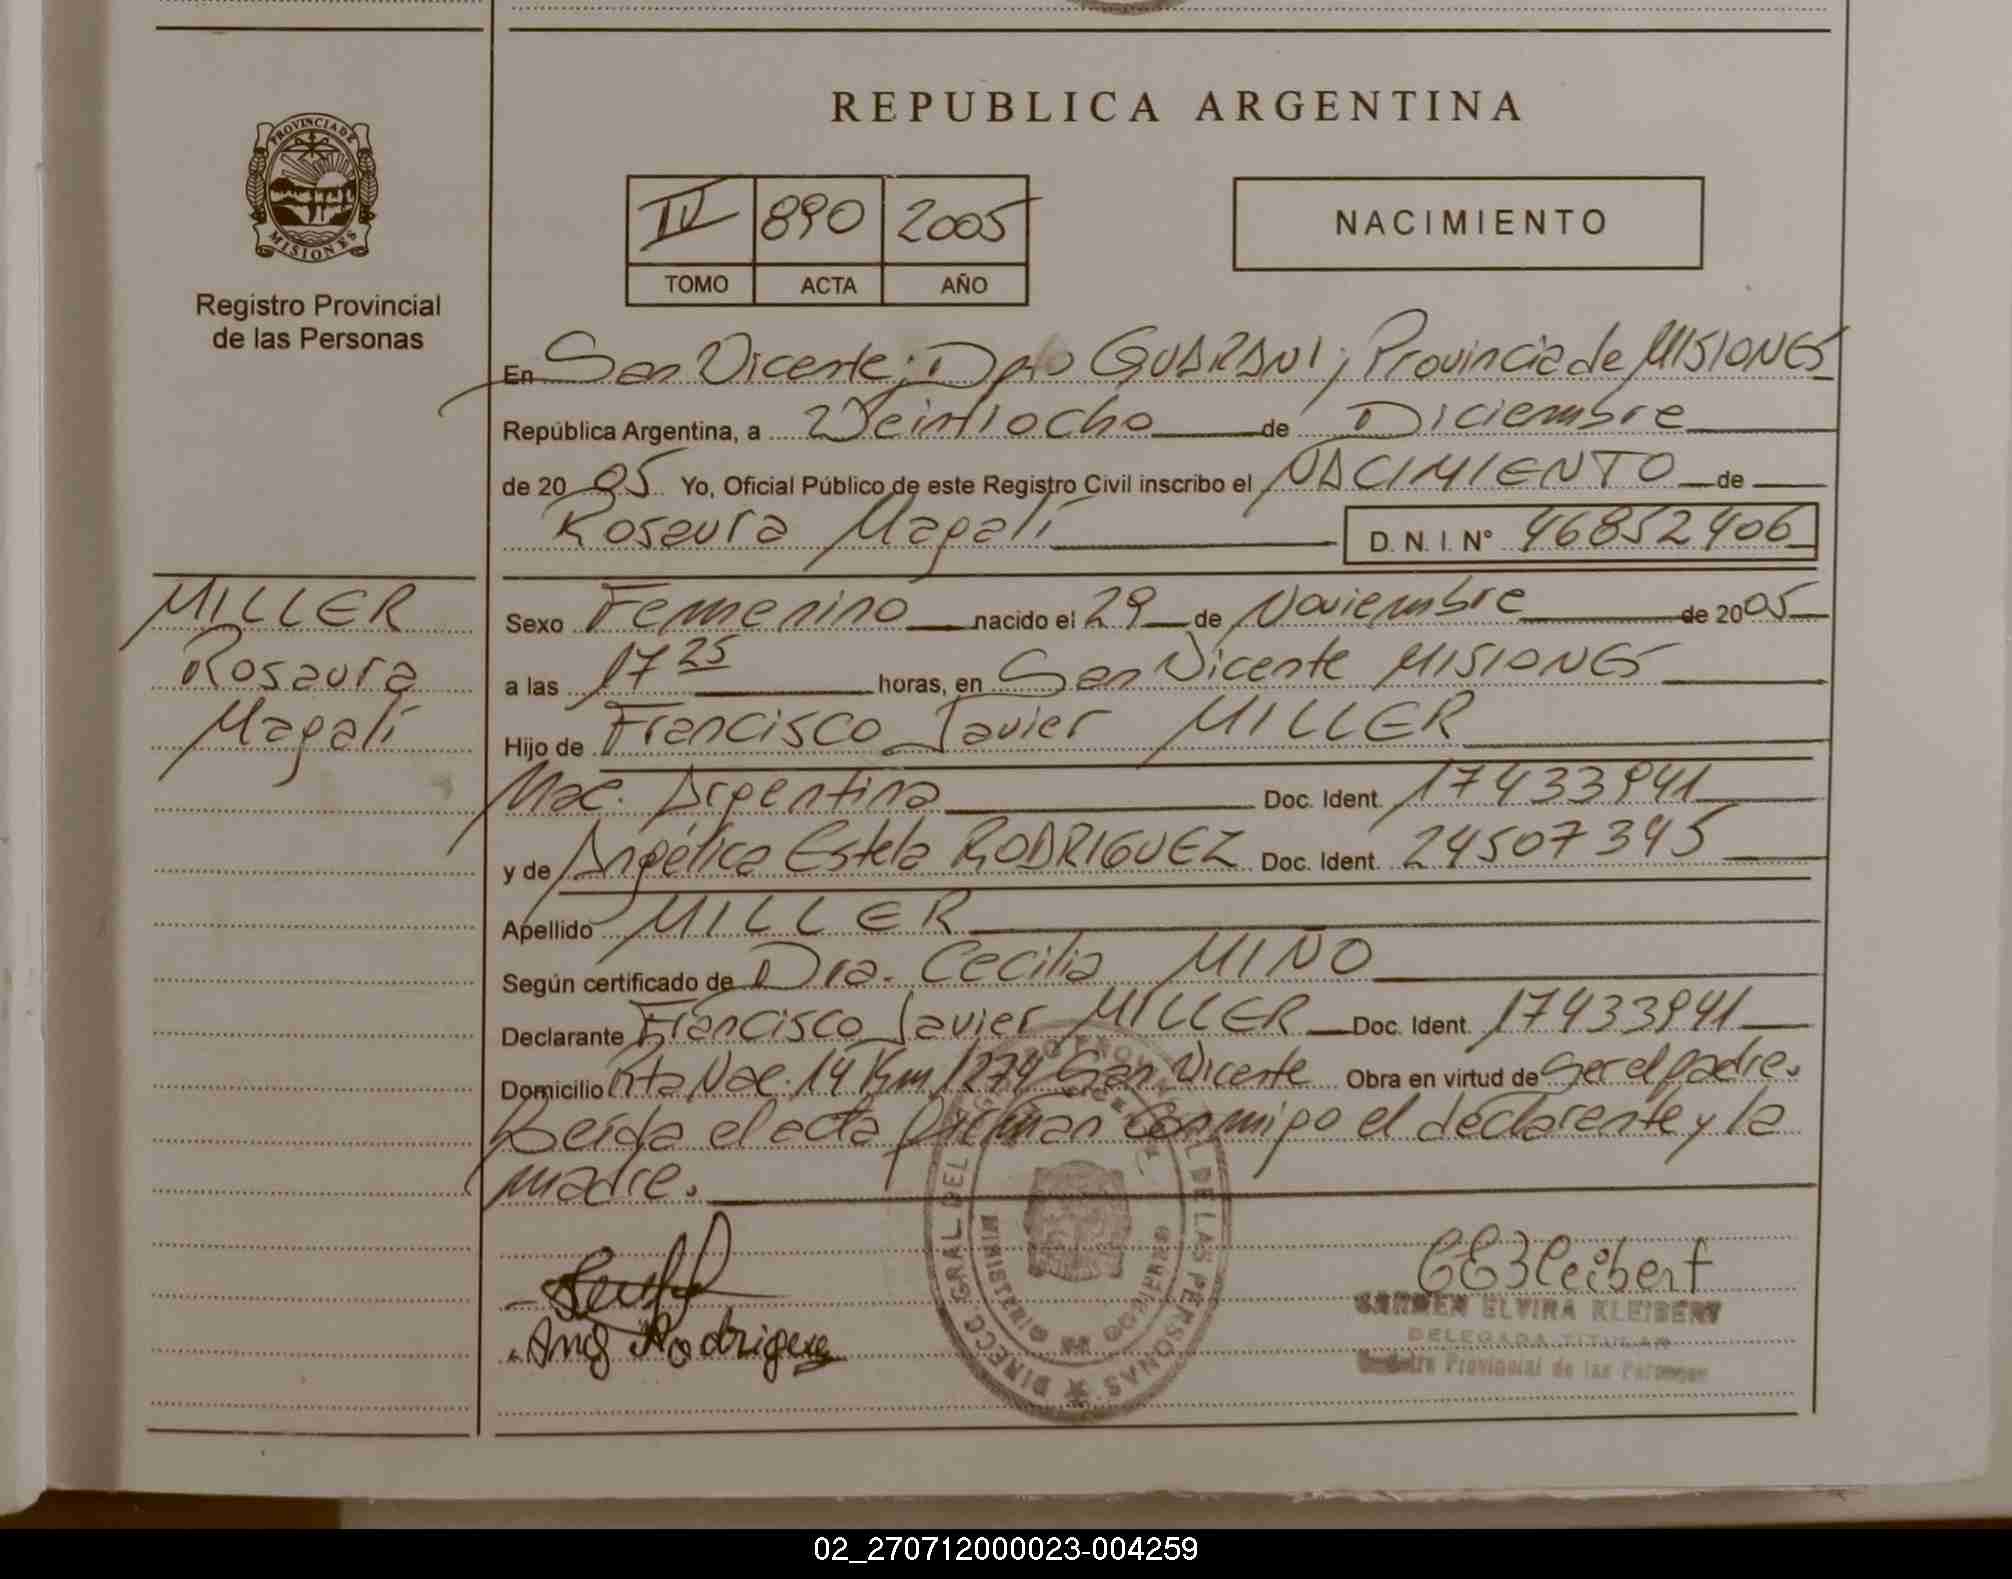 PROVINCIA DE
MISIONES
Registro Provincial
de las Personas
MILLER
Rosaura
Magalí
REPUBLICA ARGENTINA
IV 890 2005
TOMO ACTA AÑO
NACIMIENTO
En San Vicente; Dpto GUARANI; Provincia de MISIONES
República Argentina, a Veintiocho de Diciembre
de 2005 Yo, Oficial Público de este Registro Civil inscribo el NACIMIENTO de
Rosaura Magalí D. N. I. N° 46852406
Sexo Femenino nacido el 29 de Noviembre de 2005
a las 17 25 horas, en San Vicente MISIONES
Hijo de Francisco Javier MILLER
Nac. Argentina Doc. Ident. 17433941
y de Angélica Estela RODRIGUEZ Doc. Ident. 24507345
Apellido MILLER
Según certificado de Dra. Cecilia MIÑO
Declarante Francisco Javier MILLER Doc. Ident. 17433941
Domicilio Rta Nac. 14 Km 1274 San Vicente Obra en virtud de Ser el padre.
Leída el acta firman conmigo el declarante y la
madre.
Ang Rodriguez
CEKleibert
CARMEN ELVIRA KLEIBERT
DELEGADA TITULAR
Registro Provincial de las Personas
DIRECC. GRAL DEL REGISTRO PROVINCIAL DE LAS PERSONAS
MINISTERIO DE GOBIERNO
02_270712000023-004259